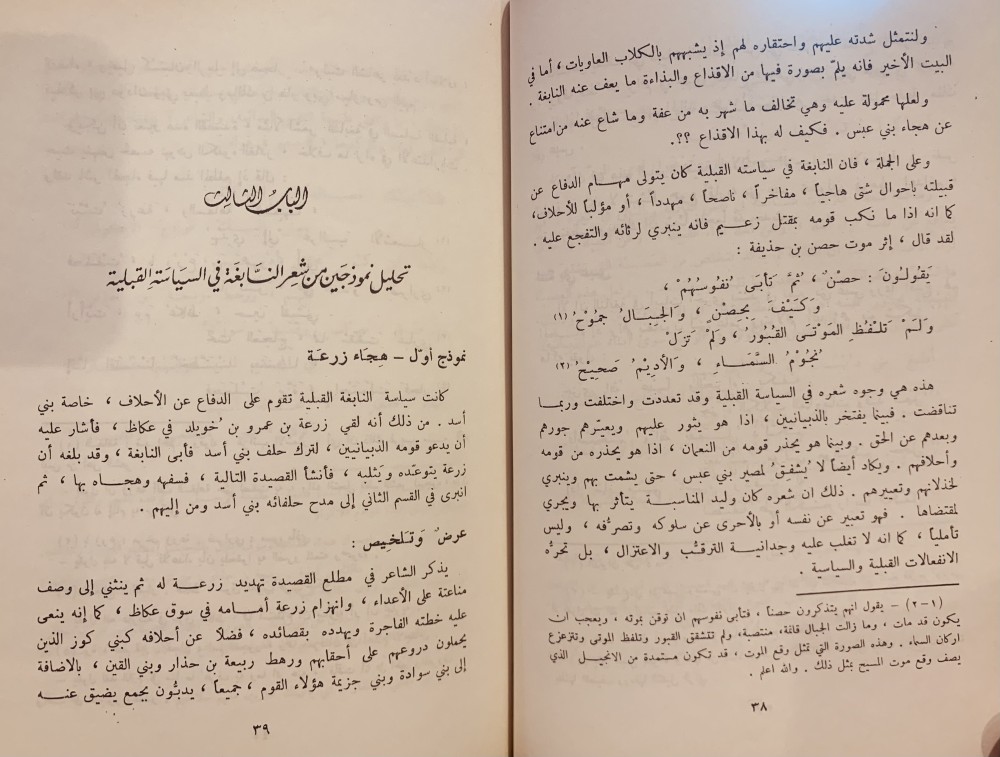 ولنتمثل شدته عليهم واحتقاره لهم إذ يشبههم بالكلاب العاويات ، أما في
البيت الأخير فانه يلمّ بصورة فيها من الاقذاع والبذاءة ما يعف عنه النابغة .
ولعلها محمولة عليه وهي تخالف ما شهر به من عفة وما شاع عنه من امتناع
عن هجاء بني عبس . فكيف له بهذا الاقذاع ؟؟.
وعلى الجملة ، فان النابغة في سياسته القبلية كان يتولى مهام الدفاع عن
قبيلته باحوال شتى هاجياً ، مفاخراً ، ناصحاً ، مهدداً ، أو مؤلباً للأحلاف،
كما انه اذا ما نكب قومه بمقتل زعيم فانه ينبري لرثائه والتفجع عليه .
لقد قال ، إثر موت حصن بن حذيفة :
يَقُولُونَ : حصْنٌ ، ثمَّ تَأبَى نُفُوسُهُمْ ،
وَكَيْفَ بِحِصْنٍ ، وَالجِبَالُ جمُوْحُ (١)
وَلَمْ تَلْفُظِ المَوْتَى القُبُورُ ، وَلَمْ تَزَلْ
نُجُوْمُ السَّمَاءِ ، وَالأدِيْمُ صَحِيْحُ (٢)
هذه هي وجوه شعره في السياسة القبلية وقد تعددت واختلفت وربما
تناقضت . فبينما يفتخر بالذبيانيين ، اذا هو يثور عليهم ويعيّرهم جورهم
وبعدهم عن الحق . وبينما هو يحذر قومه من النعمان ، اذا هو يحذره من قومه
وأحلافهم . ويكاد أيضاً لا يُشفِقُ لمصير بني عبس ، حتى يشمت بهم وينبري
لخذلانهم وتعييرهم . ذلك ان شعره كان وليد المناسبة يتأثر بها ويجري
لمقتضاها . فهو تعبير عن نفسه أو بالأحرى عن سلوكه وتصرُّفه ، وليس
تأملياً ، كما انه لا تغلب عليه وجدانية الترقُّب والاعتزال ، بل تحرُّه
الانفعالات القبلية والسياسية .
(١-٢) - يقول انهم يتذكرون حصناً ، فتأبى نفوسهم ان توقن بموته ، ويعجب ان
يكون قد مات ، وما زالت الجبال قائمة، منتصبة، ولم تتشقق القبور وتلفظ الموتى وتتزعزع
اركان السماء . وهذه الصورة التي تمثل وقع الموت ، قد تكون مستمدة من الانجيل الذي
يصف وقع موت المسيح بمثل ذلك . والله اعلم .
٣٨
الباب الثالث
تحليل نموذجين من شعر النَّابغَة في السيَاسَةِ القبلية
نموذج أوّل - هِجَاء زرعَة
كانت سياسة النابغة القبلية تقوم على الدفاع عن الأحلاف ، خاصة بني
أسد . من ذلك أنه لقي زرعة بن عمرو بن خُويلد في عكاظ ، فأشار عليه
أن يدعو قومه الذبيانيين ، لترك حلف بني أسد فأبى النابغة ، وقد بلغه أن
زرعة يتوعّده ويَثلبه ، فأنشأ القصيدة التالية ، فسفهه وهجاه بها ، ثم
انبرى في القسم الثاني إلى مدح حلفائه بني أسد ومن إليهم .
عرضٌ وَتَلخِيص :
يذكر الشاعر في مطلع القصيدة تهديد زرعة له ثم ينثني إلى وصف
مناعتة على الأعداء ، وانهزام زرعة أمامه في سوق عكاظ ، كما إنه ينعى
عليه خطته الفاجرة ويهدده بقصائده ، فضلاً عن أحلافه كبني كوز الذين
يحملون دروعهم على أحقابهم ورهط ربيعة بن حذار وبني القين ، بالاضافة
إلى بني سوادة وبني جزيمة هؤلاء القوم ، جميعاً ، يدبُّون بجمع يضيق عنه
٣٩